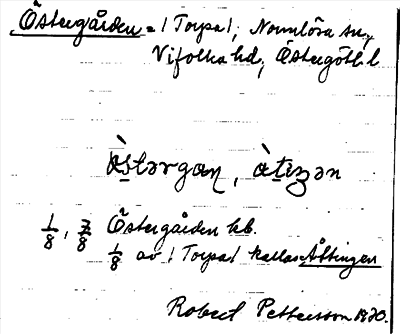 Östergården = /Torpa/, Normlösa sn,
Vifolka hd, Östergötl. l
àstərgαɳ, àtiŋən
1/8, 7/8 Östergården kb.
1/8 av /Torpa/ kallas Åttingen
Robert Pettersson 1930.